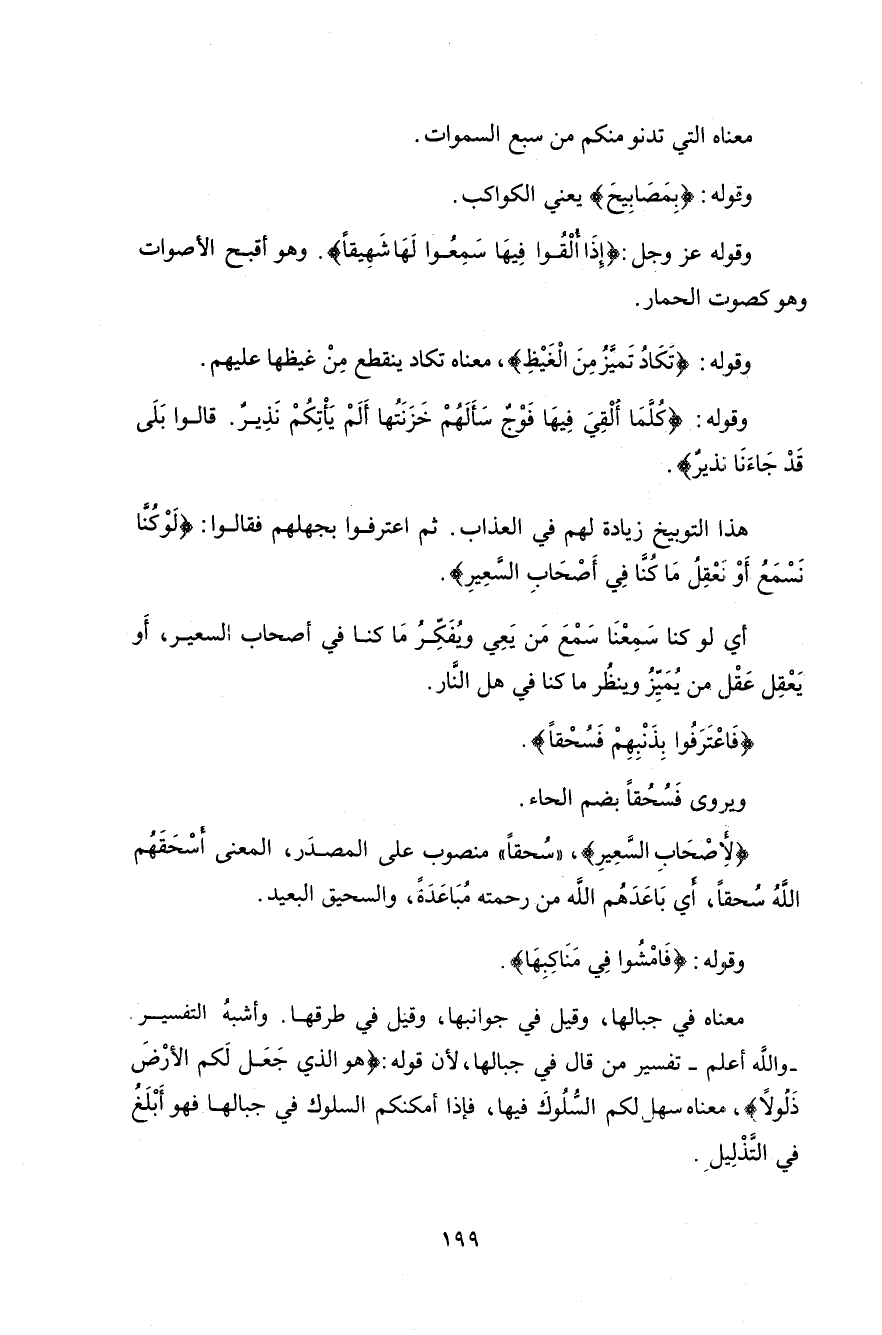 معناه التي تدنو منكم من سبع السموات.
وقوله: ﴿بِمَصَابِيحَ﴾ يعني الكواكب.
وقوله عز وجل: ﴿إِذَا أُلْقُوا فِيهَا سَمِعُوا لَهَا شَهِيقاً﴾. وهو أقبح الأصوات
وهو كصوت الحمار.
وقوله: ﴿تَكَادُ تَمَيَّزُ مِنَ الْغَيْظِ﴾، معناه تكاد ينقطع مِنْ غيظها عليهم.
وقوله: ﴿كُلَّمَا أُلْقِيَ فِيهَا فَوْجٌ سَأَلَهُمْ خَزَنَتُها أَلَمْ يَأْتِكُمْ نَذِيرٌ. قالوا بَلَى
قَدْ جَاءَنَا نذيرٌ﴾.
هذا التوبيخ زيادة لهم في العذاب. ثم اعترفوا بجهلهم فقالوا: ﴿لَوْ كُنَّا
نَسْمَعُ أَوْ نَعْقِلُ مَا كُنَّا فِي أَصْحَابِ السَّعِيرِ﴾.
أي لو كنا سَمِعْنَا سَمْعَ مَن يَعِي ويُفَكِّرُ مَا كنا في أصحاب السعير، أَو
يَعْقِل عَقْل من يُمَيِّزُ وينظُر ما كنا في هل النَّار.
﴿فَاعْتَرَفُوا بِذَنْبِهِمْ فَسُحْقاً﴾.
ويروى فَسُحُقاً بضم الحاء.
﴿لِأَصْحَابِ السَّعِيرِ﴾، «سُحقاً» منصوب على المصدَر، المعنى أَسْحَقَهُم
اللَّهُ سُحقاً، أَي بَاعَدَهُم اللَّه من رحمته مُبَاعَدَةً، والسحيق البعيد.
وقوله: ﴿فَامْشُوا فِي مَنَاكِبِهَا﴾.
معناه في جبالها، وقيل في جوانبها، وقيل في طرقها. وأشبهُ التفسير
- واللَّه أعلم - تفسير من قال في جبالها، لأن قوله: ﴿هو الذي جَعَل لَكم الأرْضَ
ذَلُولاً﴾، معناه سهل لكم السُّلُوكَ فيها، فإذا أمكنكم السلوك في جبالها فهو أَبْلَغُ
في التَّذْلِيلِ.
١٩٩